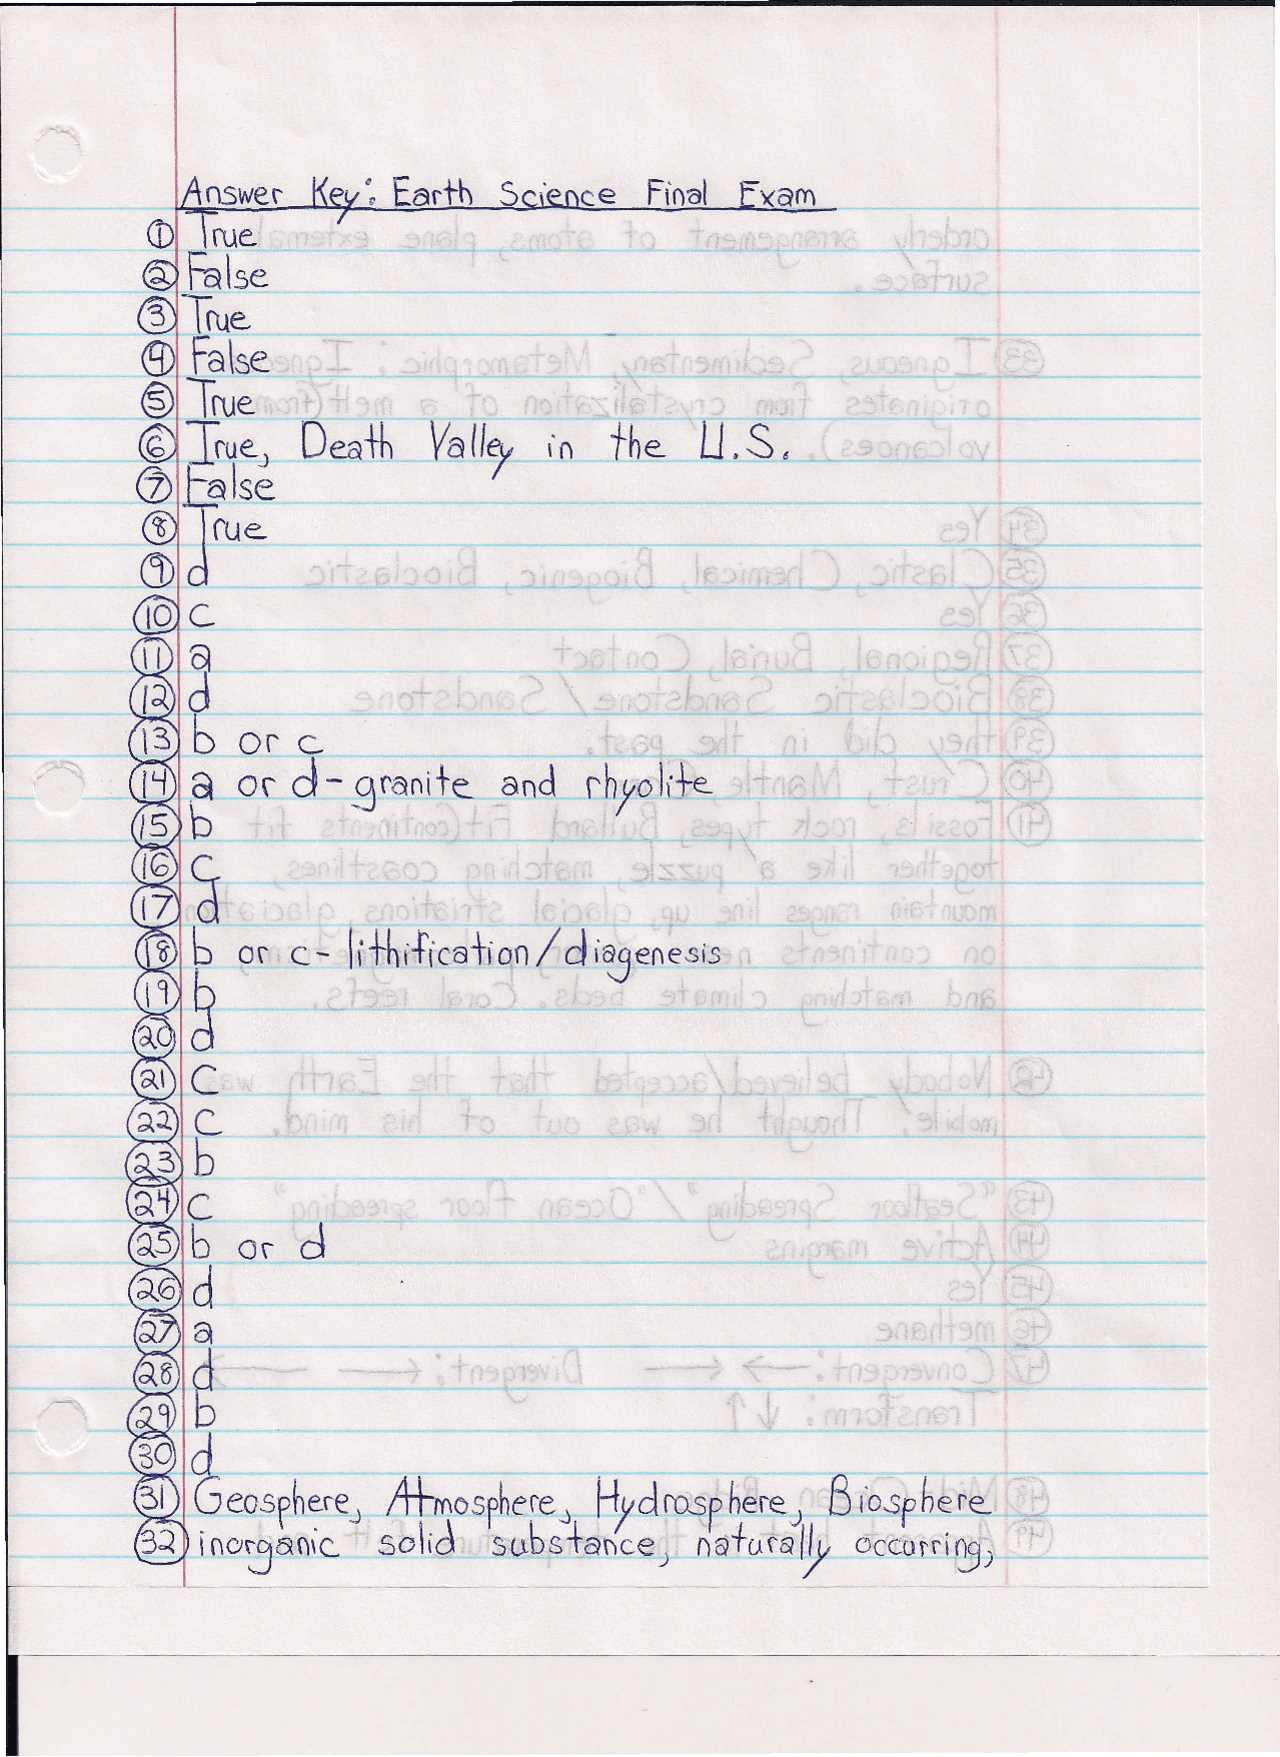 Answer Key: Earth Science Final Exam
① True
② False
③ True
④ False
⑤ True
⑥ True, Death Valley in the U.S.
⑦ False
⑧ True
⑨ d
⑩ c
⑪ a
⑫ d
⑬ b or c
⑭ a or d - granite and rhyolite
⑮ b
⑯ c
⑰ d
⑱ b or c - lithification/diagenesis
⑲ b
⑳ d
㉑ c
㉒ c
㉓ b
㉔ c
㉕ b or d
㉖ d
㉗ a
㉘ d
㉙ b
㉚ d
㉛ Geosphere, Atmosphere, Hydrosphere, Biosphere
㉜ inorganic solid substance, naturally occurring,